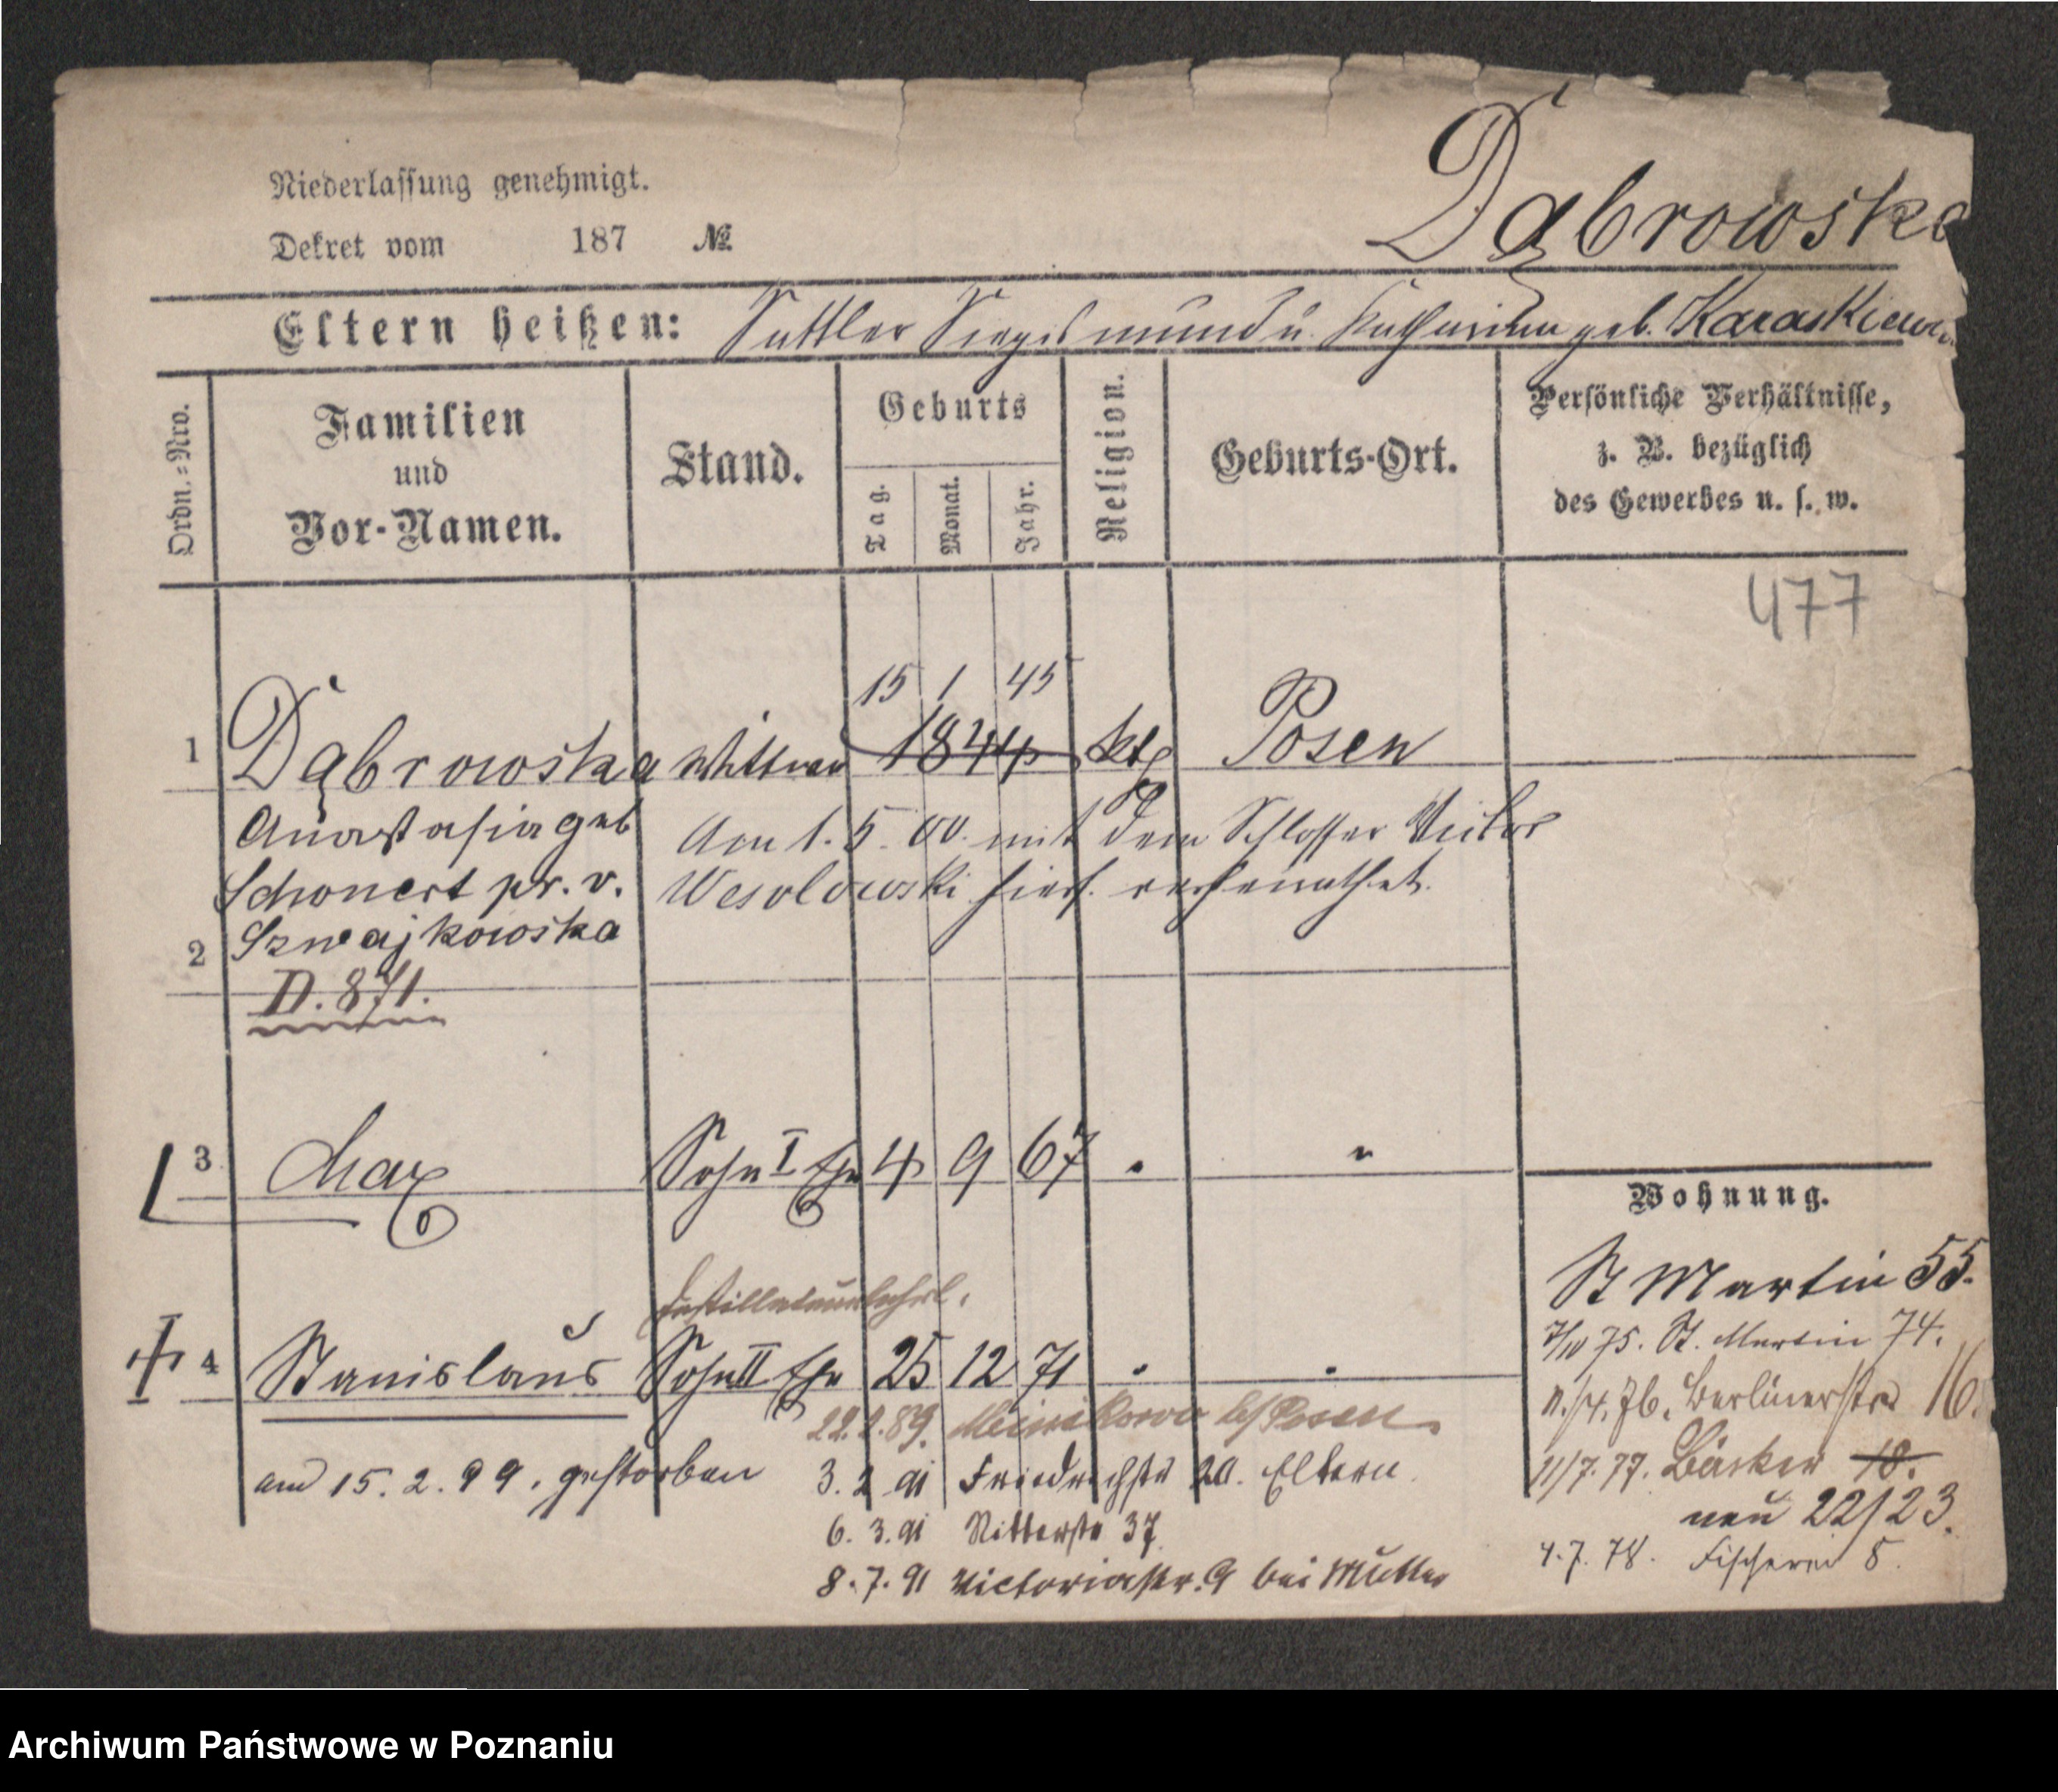 Niederlassung genehmigt.
Dekret vom 187 №
Dąbrowska
Eltern heißen: Sattler Siegismund u. Katharina geb. Karaskiewicz
Ordn.=Nro.
Familien und Vor-Namen.
Stand.
Geburts
Tag.
Monat.
Jahr.
Religion.
Geburts-Ort.
Persönliche Verhältnisse,
z. B. bezüglich
des Gewerbes u. s. w.
477
15 1 45
1 Dąbrowska Wittwe 1844 ktg Posen
Anastasia geb Am 1. 5. 00. mit dem Schlosser Victor
Schonert pr. v. Wesolowski hiers. verheirathet.
2 Szwajkowska
D. 871.
3 Max Sohn I Ehe 4 9 67 " "
Destillateurlehrl.
4 Stanislaus Sohn II Ehe 25 12 71 " "
22.2.89. bei Posen
am 15. 2. 99. gestorben 3. 2 91 Friedrichstr 20. Eltern.
6. 3. 91 Ritterstr 37
8. 7. 91 Victoriastr. 9 bei Mutter
Wohnung.
St Martin 55.
75. St. Martin 74.
11./4. 76. Berlinerstr 16.
11/7. 77. Bäcker 18.
neu 22/23.
4. 7. 78. Fischerei 5.
Archiwum Państwowe w Poznaniu